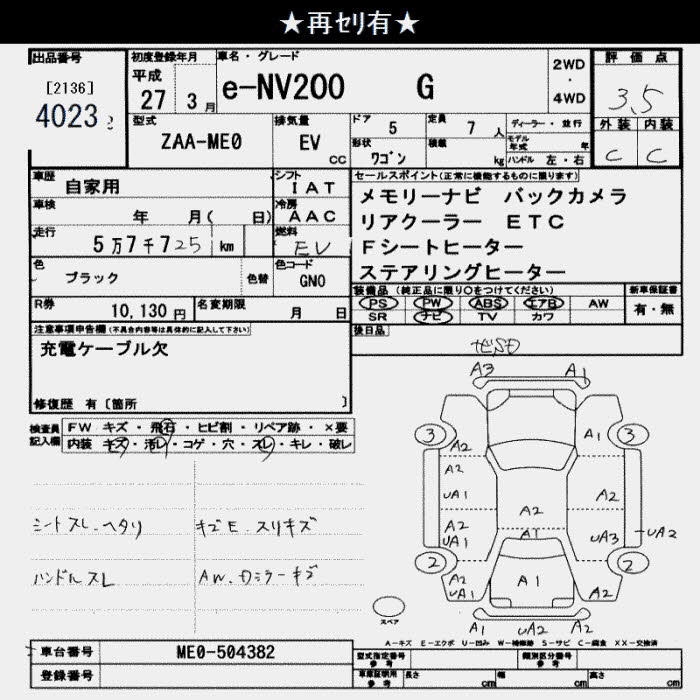 ★再セリ有★
出品番号
[2136]
4023
初度登録年月
平成
27 3 月
車名・グレード
e-NV200 G
2WD
・
4WD
評価点
3.5
型式
ZAA-ME0
排気量
EV
CC
ドア 5
定員 7 人
ディーラー・並行
モデル年式 年
形状 ワゴン
積載 kg
ハンドル 左・右
外装 内装
C C
車歴 自家用
シフト IAT
車検 年 月( 日)
冷房 AAC
走行 5万7千725 km
燃料 EV
色 ブラック
色替
色コード GN0
R券 10,130 円
名変期限 月 日
セールスポイント(正常に機能するものに限ります)
メモリーナビ バックカメラ
リアクーラー ETC
Fシートヒーター
ステアリングヒーター
装備品 (純正品に限り○をつけてください)
PS PW ABS エアB AW
SR ナビ TV カワ
新車保証書
有・無
後日品
注意事項申告欄(不具合内容等は具体的に記入して下さい)
充電ケーブル欠
修復歴 有〔箇所 〕
検査員記入欄
FW キズ・飛石・ヒビ割・リペア跡・×要
内装 キズ・汚レ・コゲ・穴・スレ・キレ・破レ
シートスレ・ヘタリ
キズE・スリキズ
ハンドルスレ
A3 A1
3 3
A2 A1
A2
UA1 A2 A2
A2 A1
UA1 UA3 UA2
2 2
A2 A1 A2
UA1
A1 UA2 A2
スペア
A-キズ E-エクボ U-凹み W-補修跡 S-サビ C-腐食 XX-交換済
車台番号 ME0-504382
登録番号
型式指定番号 参考
類別区分番号 参考
車庫証明用 参考
長さ cm
幅 cm
高さ cm